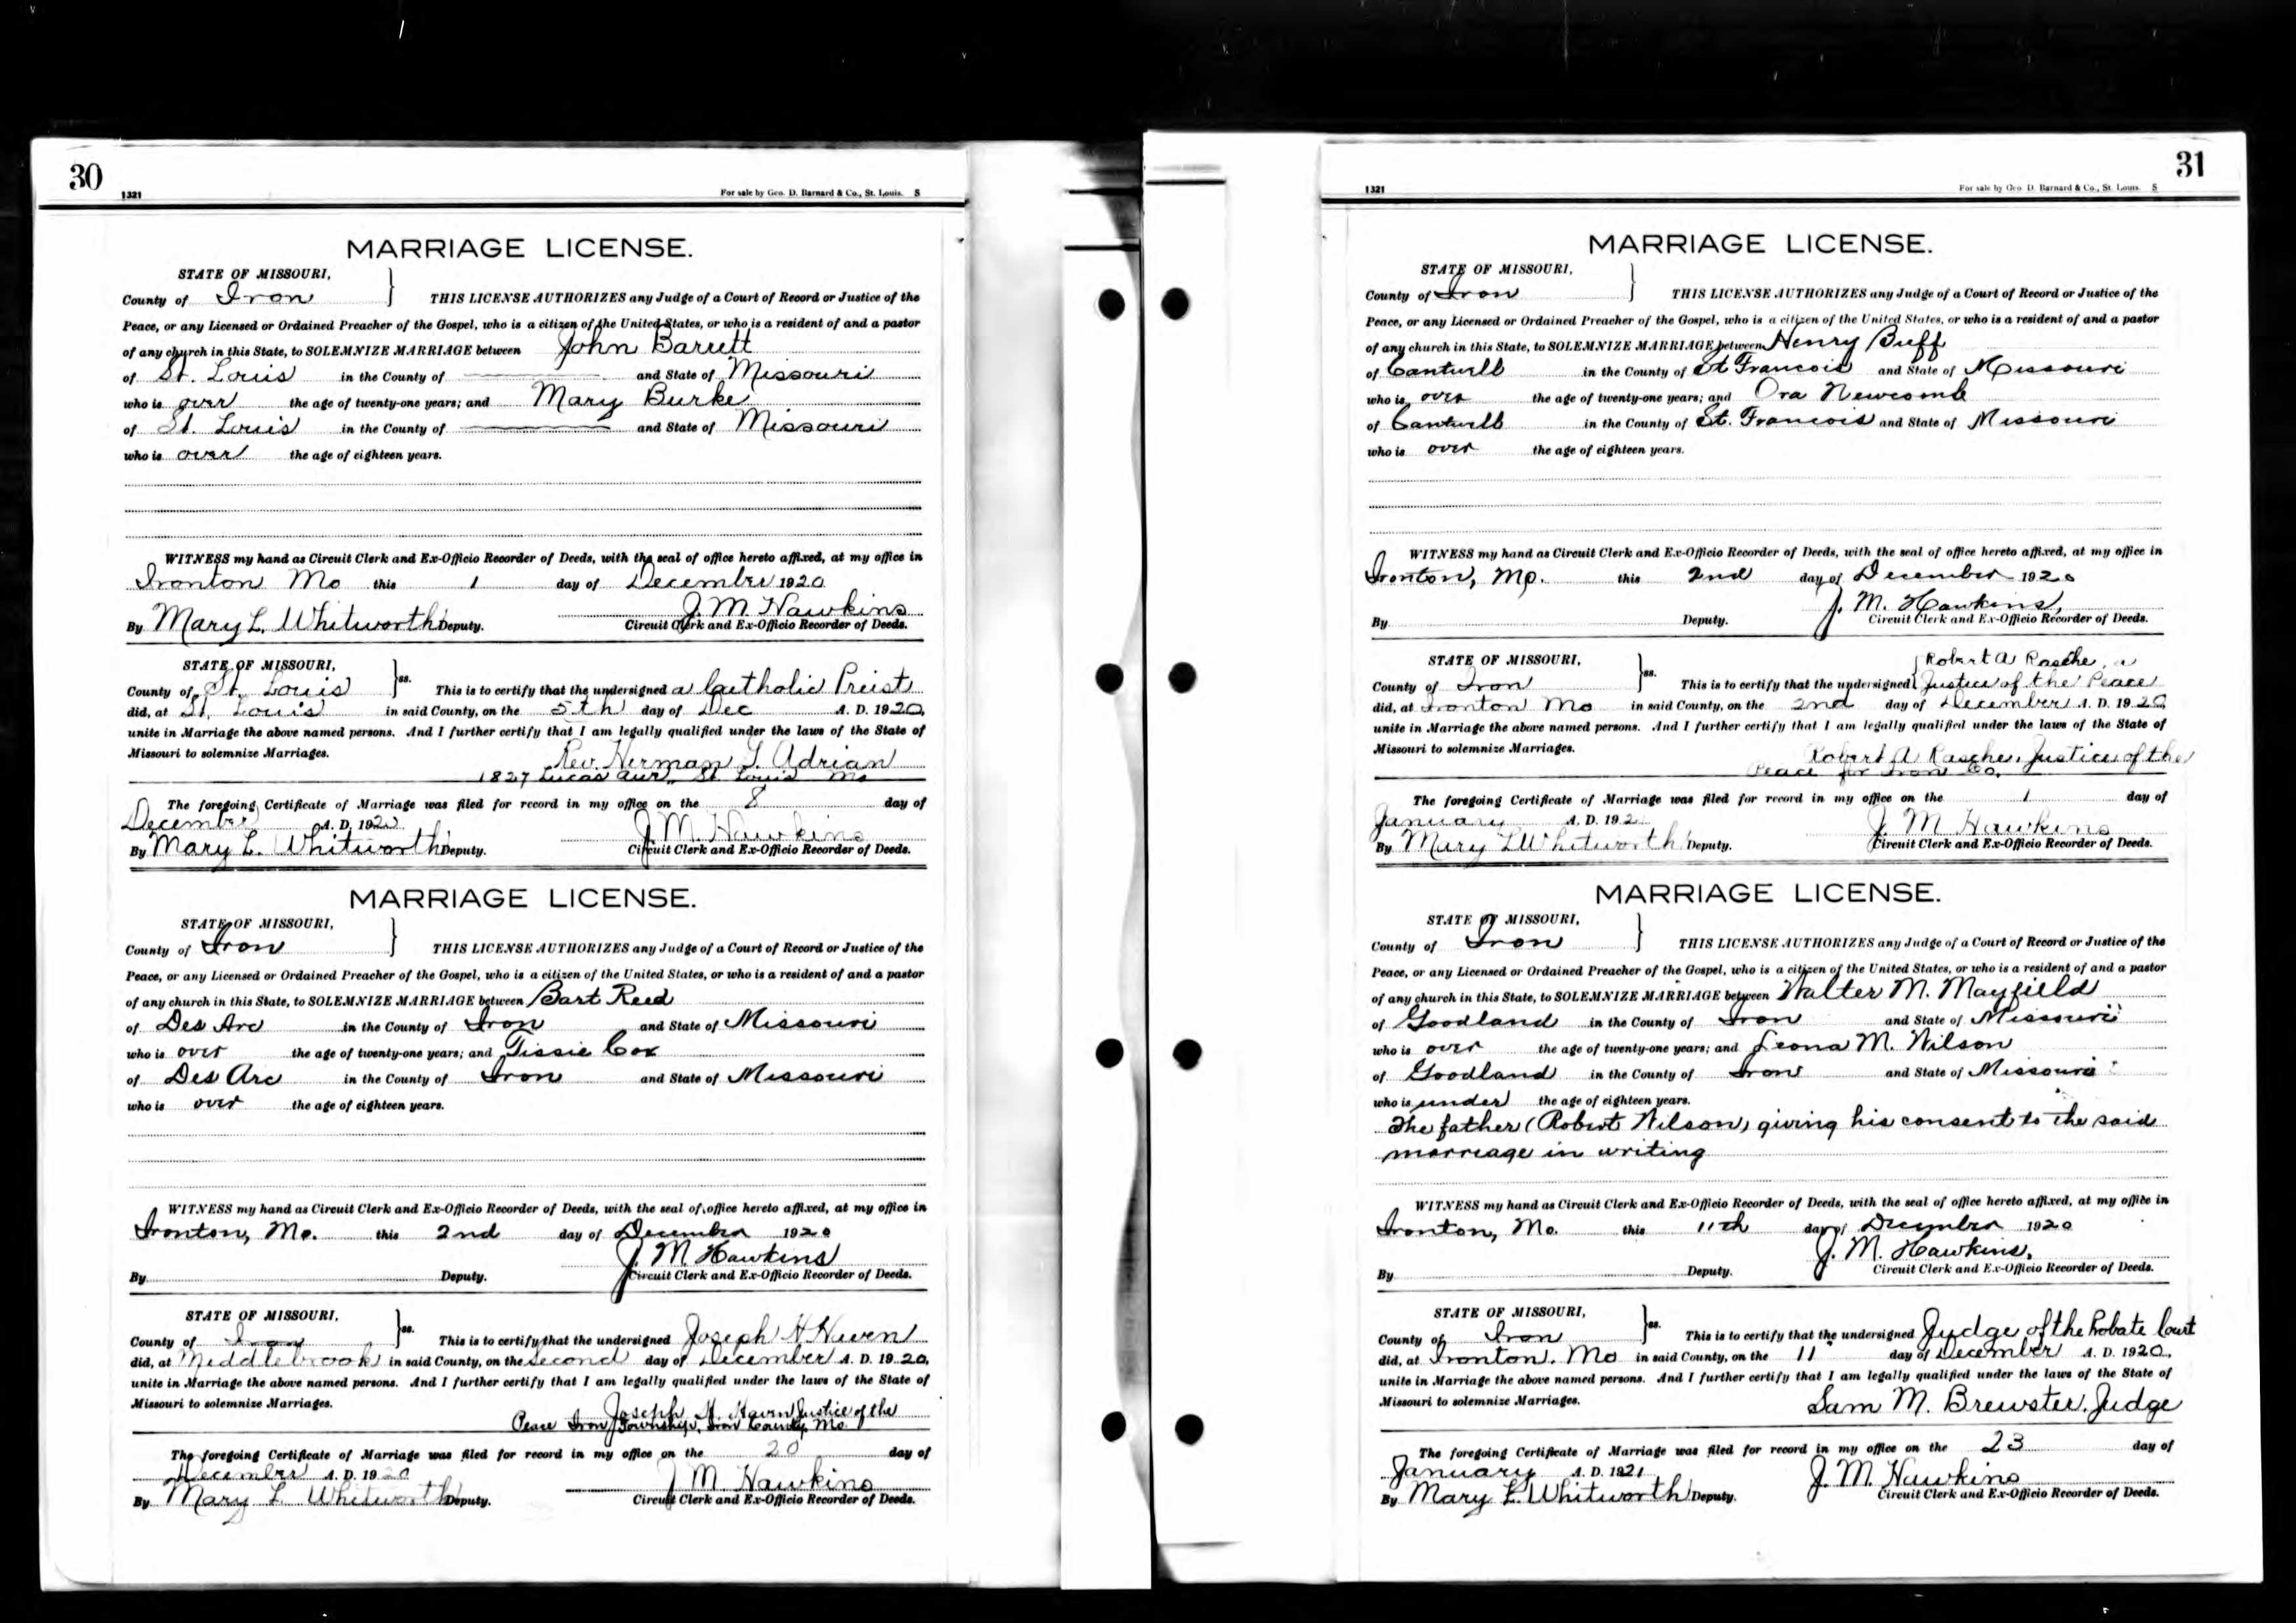 30
1321
For sale by Geo. D. Barnard & Co., St. Louis. S
MARRIAGE LICENSE.
STATE OF MISSOURI,
County of Iron } THIS LICENSE AUTHORIZES any Judge of a Court of Record or Justice of the
Peace, or any Licensed or Ordained Preacher of the Gospel, who is a citizen of the United States, or who is a resident of and a pastor
of any church in this State, to SOLEMNIZE MARRIAGE between John Barrett
of St. Louis in the County of and State of Missouri
who is over the age of twenty-one years; and Mary Burke
of St. Louis in the County of and State of Missouri
who is over the age of eighteen years.
WITNESS my hand as Circuit Clerk and Ex-Officio Recorder of Deeds, with the seal of office hereto affixed, at my office in
Ironton Mo this 1 day of December 1920
J. M. Hawkins
By Mary L. Whitworth Deputy. Circuit Clerk and Ex-Officio Recorder of Deeds.
STATE OF MISSOURI,
County of St. Louis } ss. This is to certify that the undersigned a Catholic Preist
did, at St. Louis in said County, on the 5th day of Dec A. D. 1920,
unite in Marriage the above named persons. And I further certify that I am legally qualified under the laws of the State of
Missouri to solemnize Marriages.
Rev. Herman I. Adrian
1827 Lucas Ave., St. Louis Mo
The foregoing Certificate of Marriage was filed for record in my office on the 8 day of
December A. D. 1920
J. M. Hawkins
By Mary L. Whitworth Deputy. Circuit Clerk and Ex-Officio Recorder of Deeds.
MARRIAGE LICENSE.
STATE OF MISSOURI,
County of Iron } THIS LICENSE AUTHORIZES any Judge of a Court of Record or Justice of the
Peace, or any Licensed or Ordained Preacher of the Gospel, who is a citizen of the United States, or who is a resident of and a pastor
of any church in this State, to SOLEMNIZE MARRIAGE between Bart Reed
of Des Arc in the County of Iron and State of Missouri
who is over the age of twenty-one years; and Tissie Cox
of Des Arc in the County of Iron and State of Missouri
who is over the age of eighteen years.
WITNESS my hand as Circuit Clerk and Ex-Officio Recorder of Deeds, with the seal of office hereto affixed, at my office in
Ironton, Mo. this 2nd day of December 1920
J. M. Hawkins
By Deputy. Circuit Clerk and Ex-Officio Recorder of Deeds.
STATE OF MISSOURI,
County of Iron } ss. This is to certify that the undersigned Joseph H. Haven
did, at Middlebrook in said County, on the second day of December A. D. 1920,
unite in Marriage the above named persons. And I further certify that I am legally qualified under the laws of the State of
Missouri to solemnize Marriages.
Joseph H. Haven Justice of the
Peace Iron Township, Iron County, Mo
The foregoing Certificate of Marriage was filed for record in my office on the 20 day of
December A. D. 1920
J. M. Hawkins
By Mary L. Whitworth Deputy. Circuit Clerk and Ex-Officio Recorder of Deeds.
31
1321
For sale by Geo. D. Barnard & Co., St. Louis. S
MARRIAGE LICENSE.
STATE OF MISSOURI,
County of Iron } THIS LICENSE AUTHORIZES any Judge of a Court of Record or Justice of the
Peace, or any Licensed or Ordained Preacher of the Gospel, who is a citizen of the United States, or who is a resident of and a pastor
of any church in this State, to SOLEMNIZE MARRIAGE between Henry Buff
of Cantwell in the County of St Francois and State of Missouri
who is over the age of twenty-one years; and Ora Newcomb
of Cantwell in the County of St. Francois and State of Missouri
who is over the age of eighteen years.
WITNESS my hand as Circuit Clerk and Ex-Officio Recorder of Deeds, with the seal of office hereto affixed, at my office in
Ironton, Mo. this 2nd day of December 1920
J. M. Hawkins,
By Deputy. Circuit Clerk and Ex-Officio Recorder of Deeds.
STATE OF MISSOURI, Robert A Rasche, a
County of Iron } ss. This is to certify that the undersigned Justice of the Peace
did, at Ironton Mo in said County, on the 2nd day of December A. D. 1920,
unite in Marriage the above named persons. And I further certify that I am legally qualified under the laws of the State of
Missouri to solemnize Marriages.
Robert A Rasche, Justice of the
Peace for Iron Co.
The foregoing Certificate of Marriage was filed for record in my office on the 1 day of
January A. D. 1921
J. M Hawkins
By Mary L Whitworth Deputy. Circuit Clerk and Ex-Officio Recorder of Deeds.
MARRIAGE LICENSE.
STATE OF MISSOURI,
County of Iron } THIS LICENSE AUTHORIZES any Judge of a Court of Record or Justice of the
Peace, or any Licensed or Ordained Preacher of the Gospel, who is a citizen of the United States, or who is a resident of and a pastor
of any church in this State, to SOLEMNIZE MARRIAGE between Walter M. Mayfield
of Goodland in the County of Iron and State of Missouri
who is over the age of twenty-one years; and Leona M. Wilson
of Goodland in the County of Iron and State of Missouri
who is under the age of eighteen years.
The father (Robert Wilson) giving his consent to the said
marriage in writing
WITNESS my hand as Circuit Clerk and Ex-Officio Recorder of Deeds, with the seal of office hereto affixed, at my office in
Ironton, Mo. this 11th day of December 1920
J. M. Hawkins,
By Deputy. Circuit Clerk and Ex-Officio Recorder of Deeds.
STATE OF MISSOURI,
County of Iron } ss. This is to certify that the undersigned Judge of the Probate Court
did, at Ironton, Mo in said County, on the 11 day of December A. D. 1920,
unite in Marriage the above named persons. And I further certify that I am legally qualified under the laws of the State of
Missouri to solemnize Marriages.
Sam M. Brewster, Judge
The foregoing Certificate of Marriage was filed for record in my office on the 23 day of
January A. D. 1921
J. M. Hawkins
By Mary L. Whitworth Deputy. Circuit Clerk and Ex-Officio Recorder of Deeds.